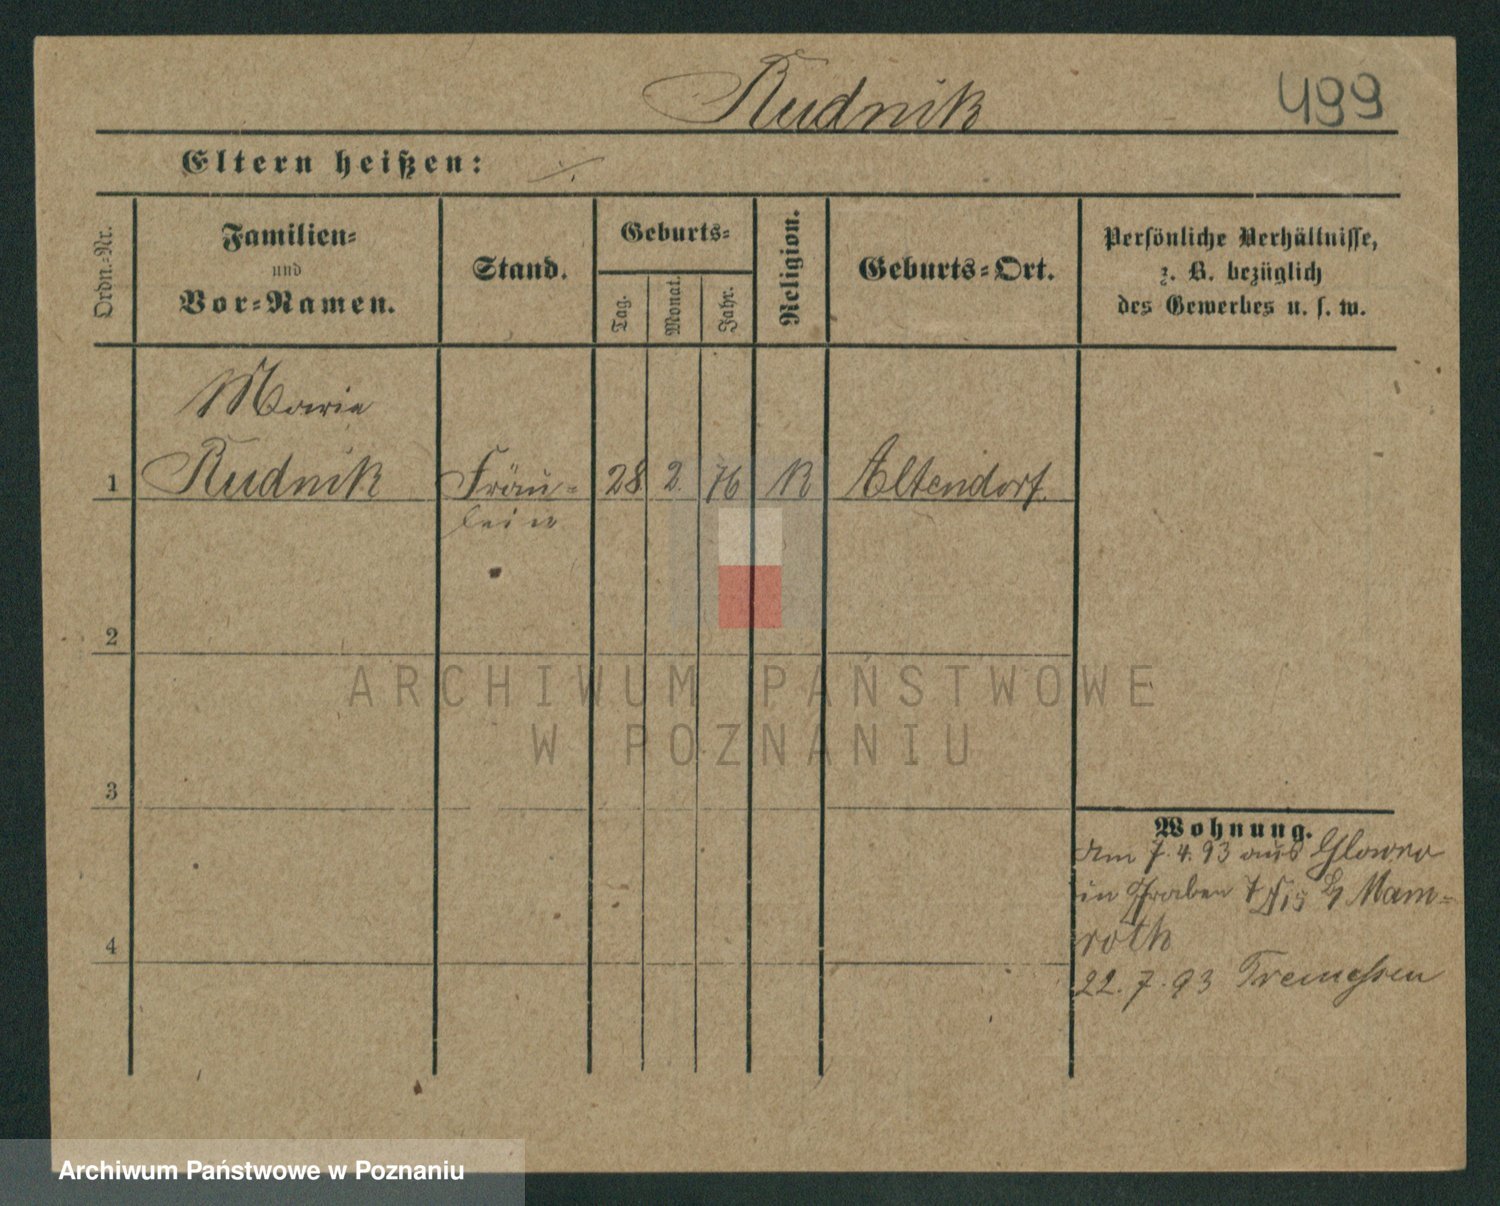 Rudnik 499
Eltern heißen: ./.
Ordn.-Nr.
Familien-
und
Vor-Namen.
Stand.
Geburts-
Tag.
Monat.
Jahr.
Religion.
Geburts-Ort.
Persönliche Verhältnisse,
z. B. bezüglich
des Gewerbes u. s. w.
Maria
1 Rudnik Fräu- 28 2 76 K Altendorf.
lein
2
3
4
Wohnung.
Am 7.4.93 aus
in Graben 7 Mam-
roth
22.7.93 Tremessen
ARCHIWUM PAŃSTWOWE
W POZNANIU
Archiwum Państwowe w Poznaniu